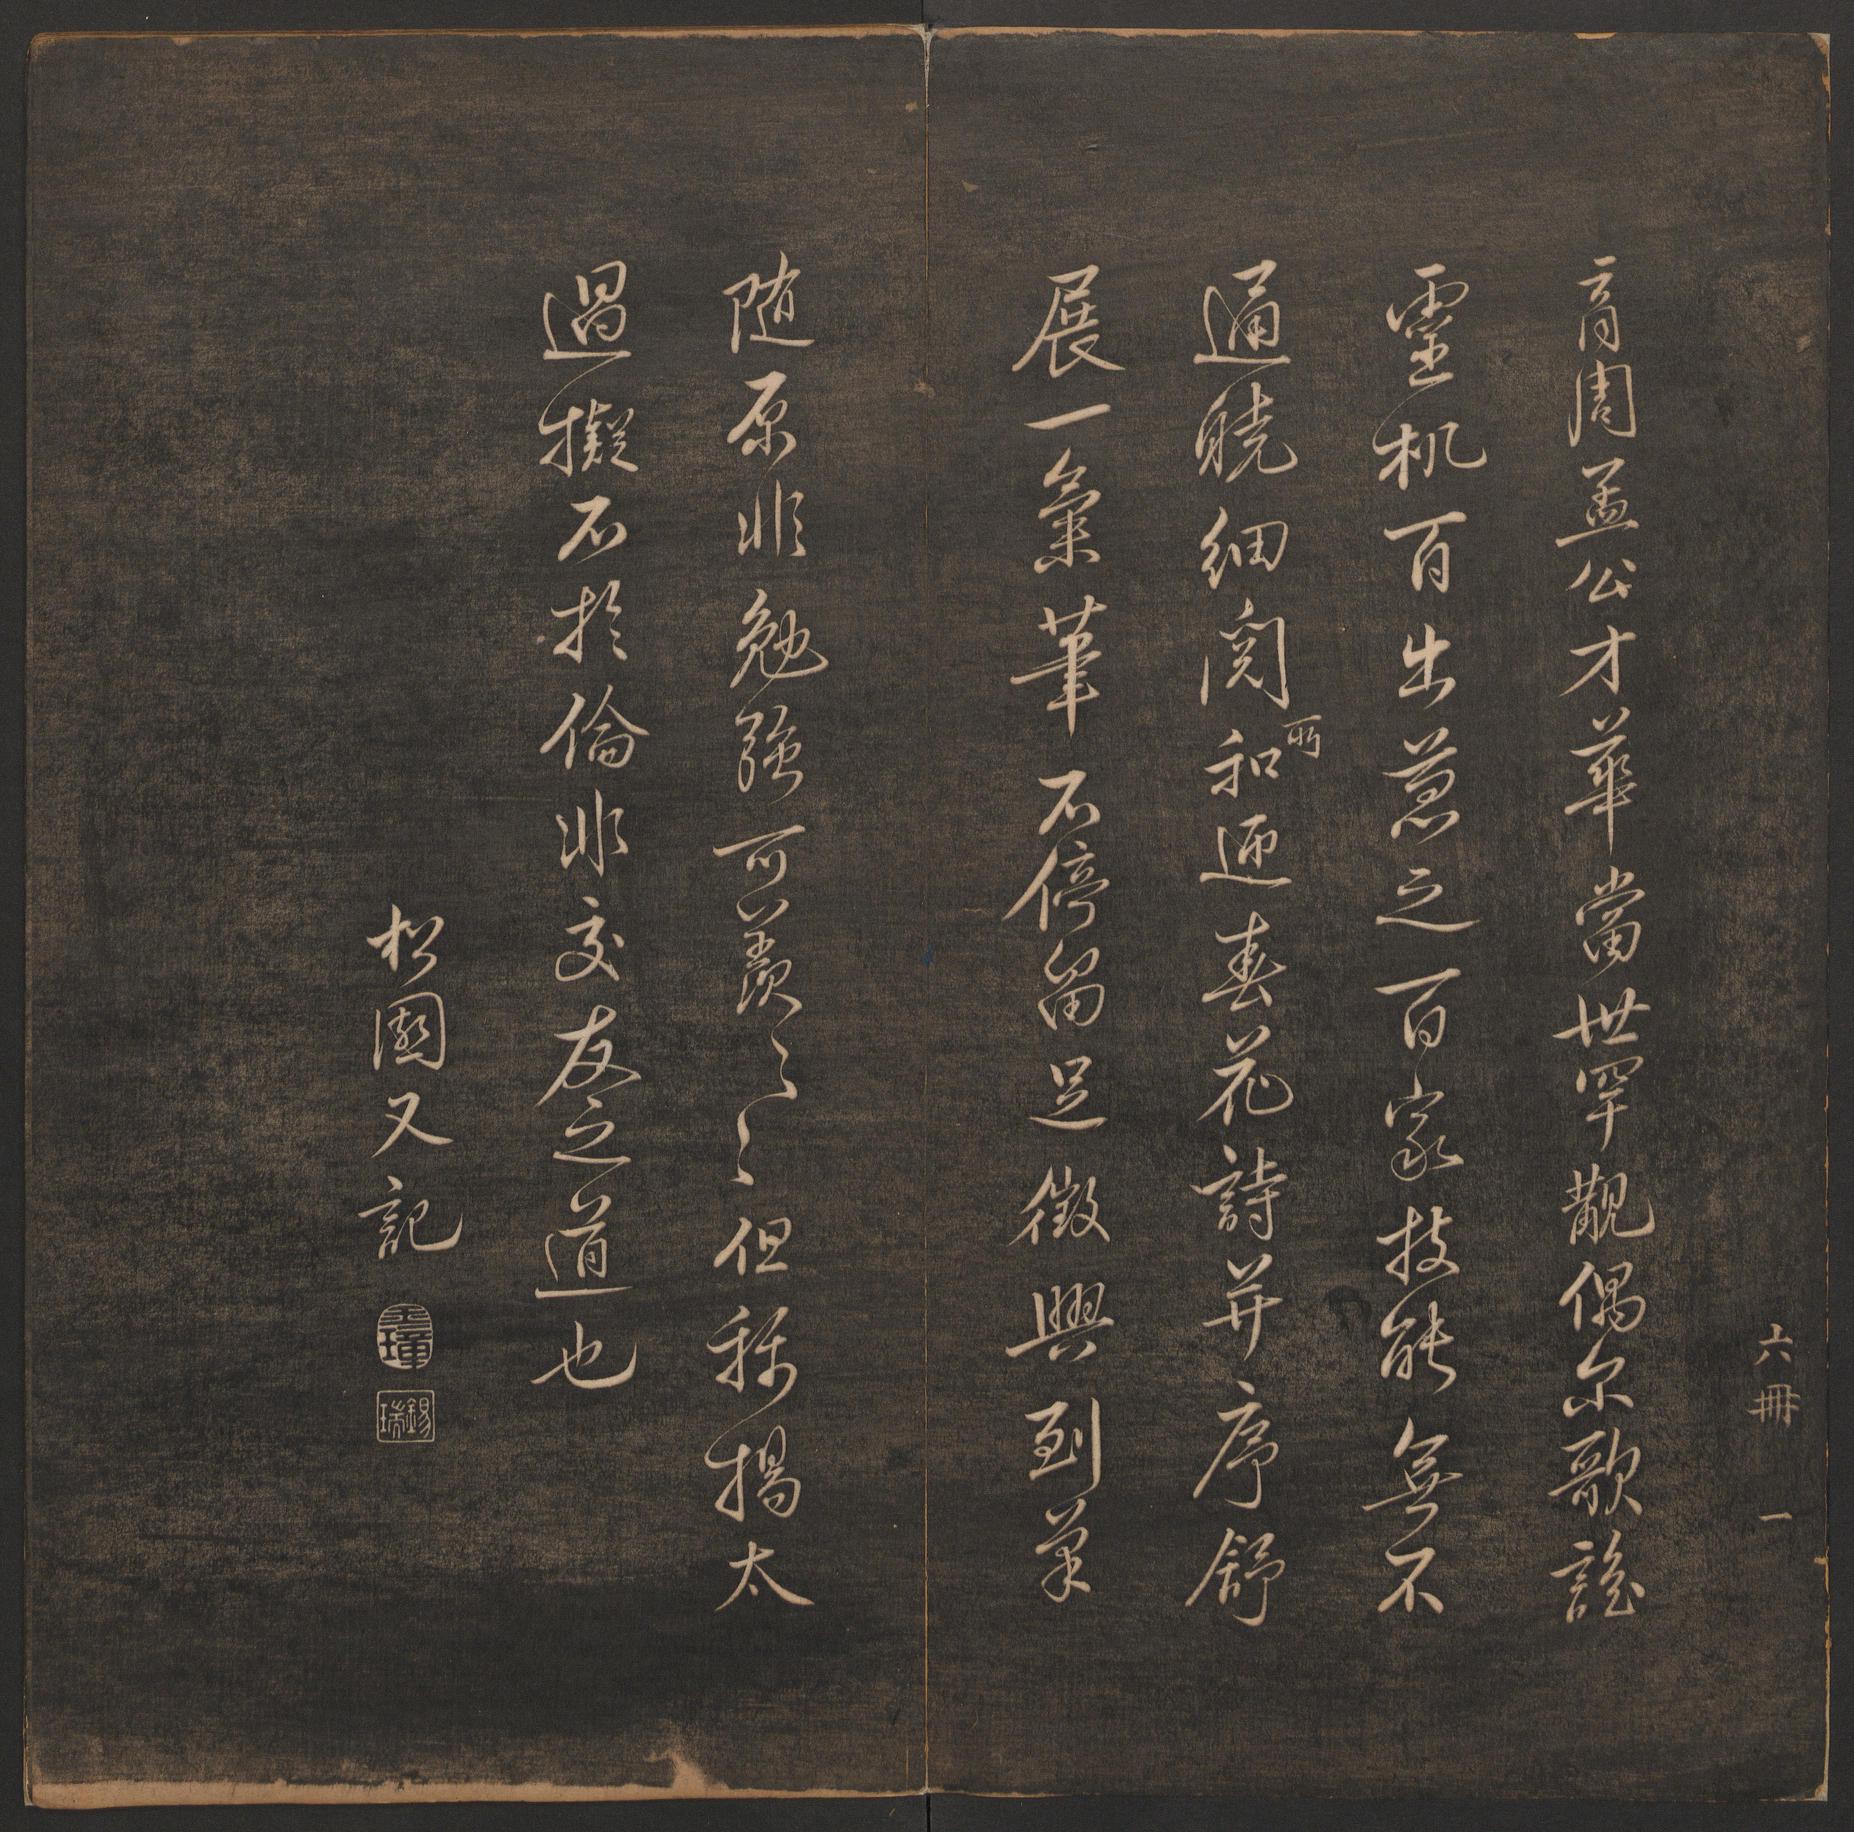 六冊 一
育周盖公才華當世罕覯偶尔歌謠
靈机百出兼之百家技能無不
通曉細閱所和迎春花詩并序舒
展一氣筆不停留足徵興到筆
随原非勉強可羨〻〻但稱揚太
過擬不於倫非交友之道也
松園又記
王璋
錫瑞